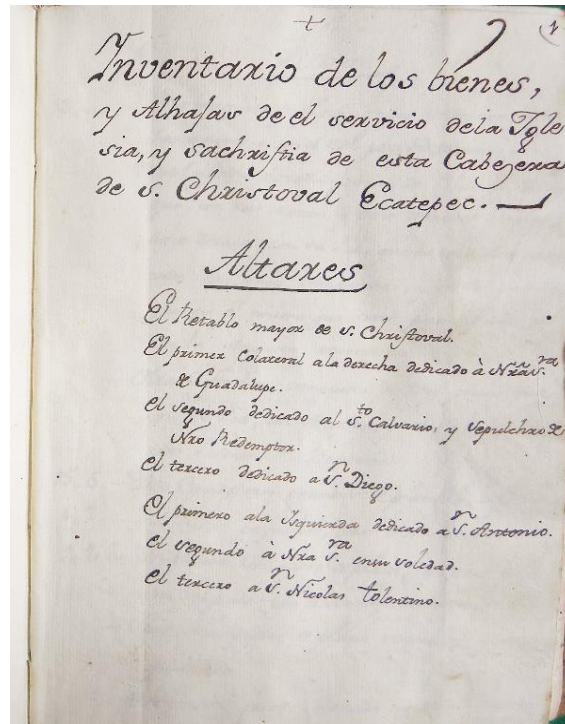 +
1
Inventario de los bienes,
y Alhajas de el servicio dela Igle
sia, y sachristia de esta Cabezera
de S. Christoval Ecatepec.
Altares
El Retablo mayor de S. Christoval.
El primer Colateral ala derecha dedicado à Nrã Sra
de Guadalupe.
el segundo dedicado al Sto Calvario, y sepulchro de
Nro Redemptor.
el tercero dedicado a Sn Diego.
El primero ala Isquierda dedicado a Sn Antonio.
el segundo à Nra Sra ensu soledad.
el tercero a Sn Nicolas tolentino.